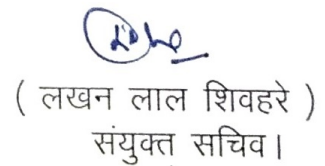 ( लखन लाल शिवहरे )
संयुक्त सचिव।